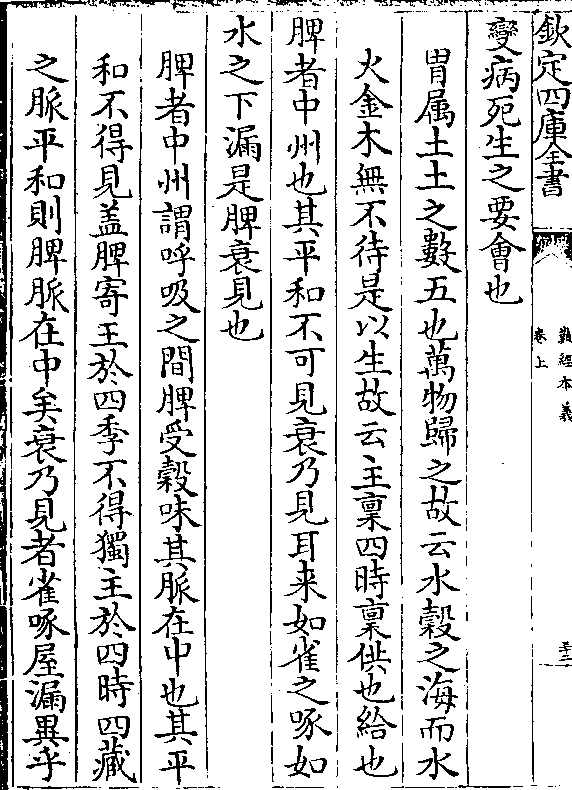 欽定四庫全書
難經本義
卷上
變病死生之要會也
胃属土土之數五也萬物歸之故云水穀之海而水
火金木無不待是以生故云主稟四時稟供也給也
脾者中州也其平和不可見衰乃見耳来如雀之啄如
水之下漏是脾衰見也
脾者中州謂呼吸之間脾受穀味其脈在中也其平
和不得見盖脾寄王於四季不得獨主於四時四藏
之脈平和則脾脈在中矣衰乃見者雀啄屋漏異乎